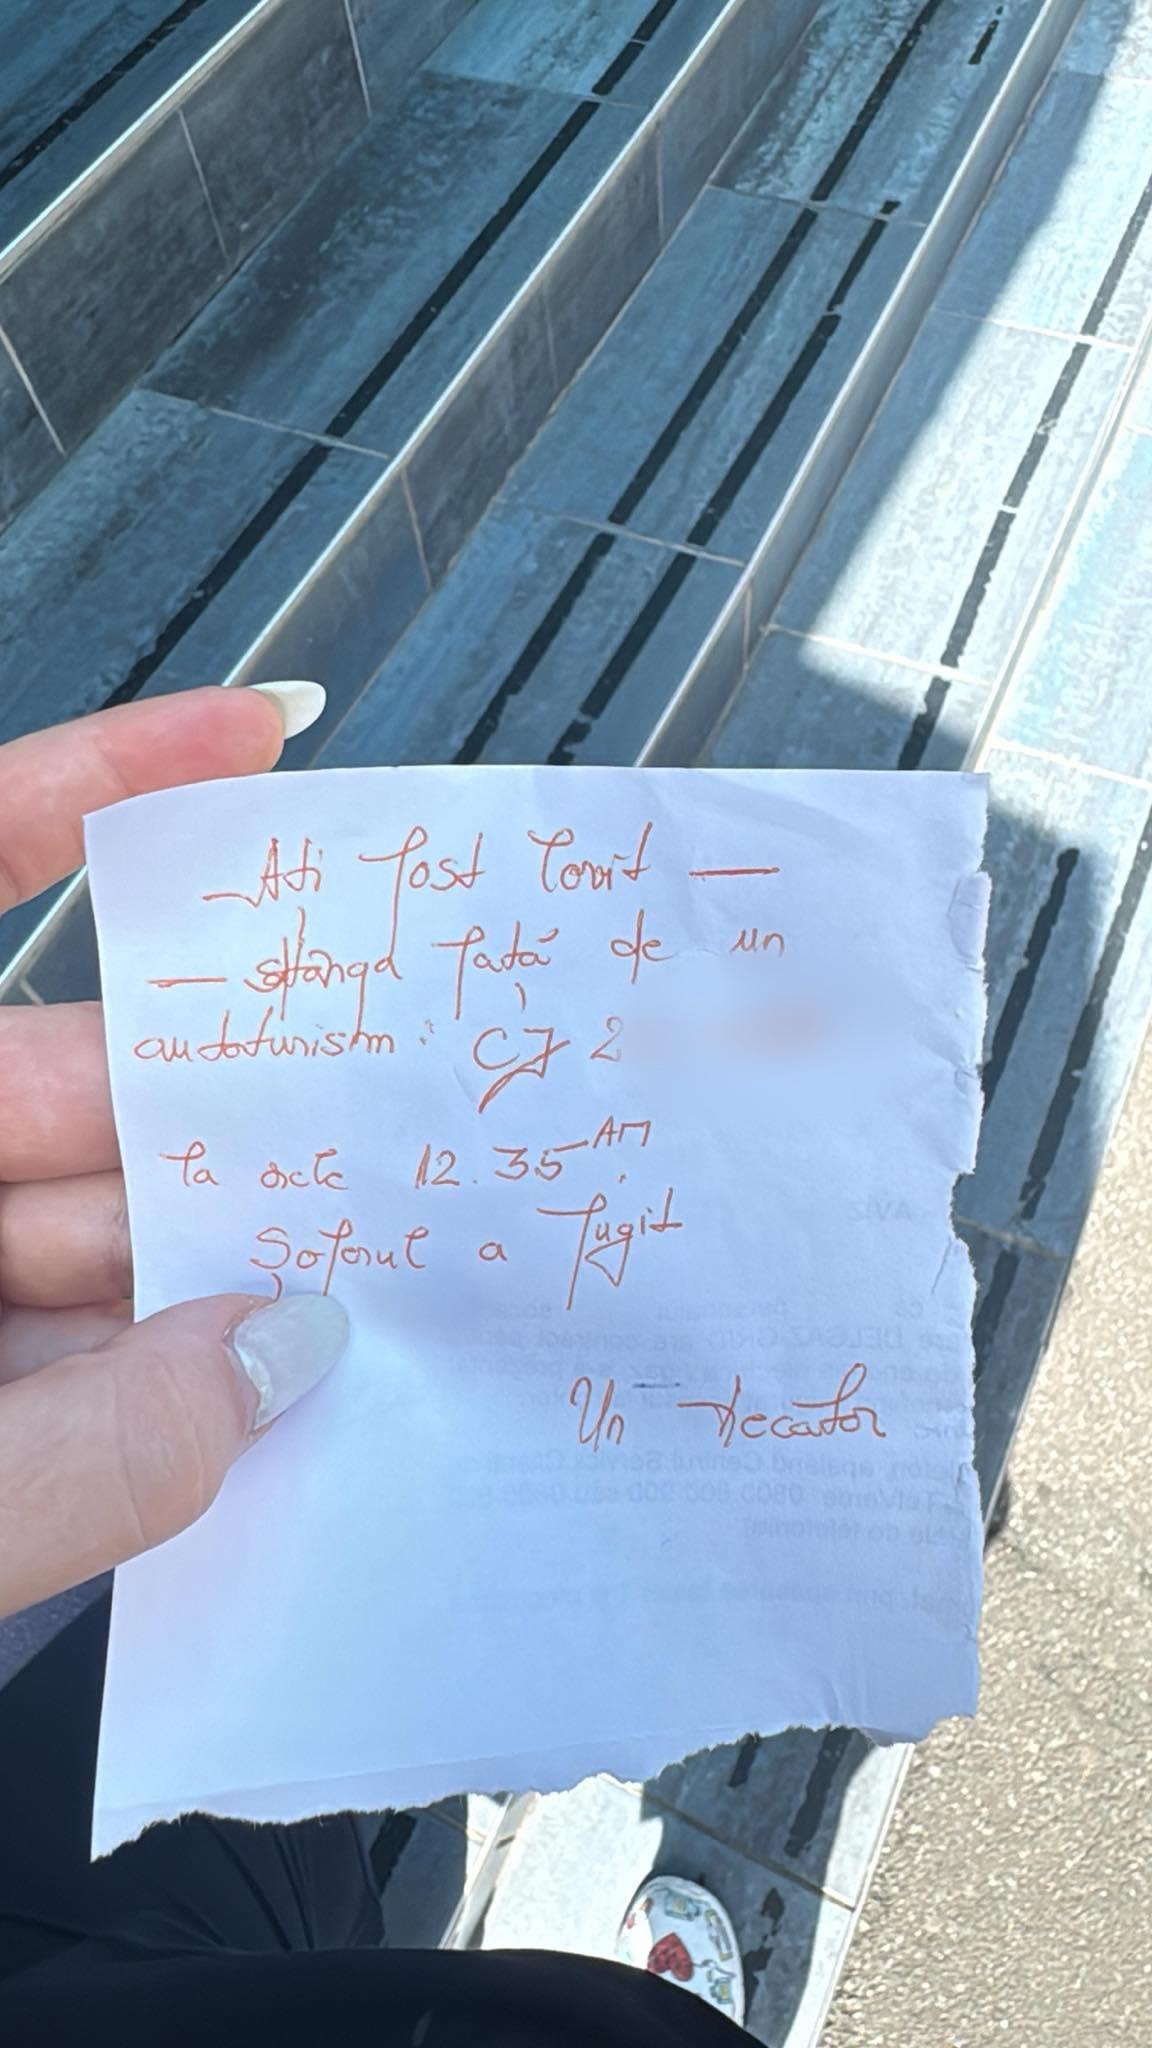 — Ați fost lovit —
— stânga față de un
autoturism: CJ 2
la orele 12.35 AM
Șoferul a fugit
Un trecător